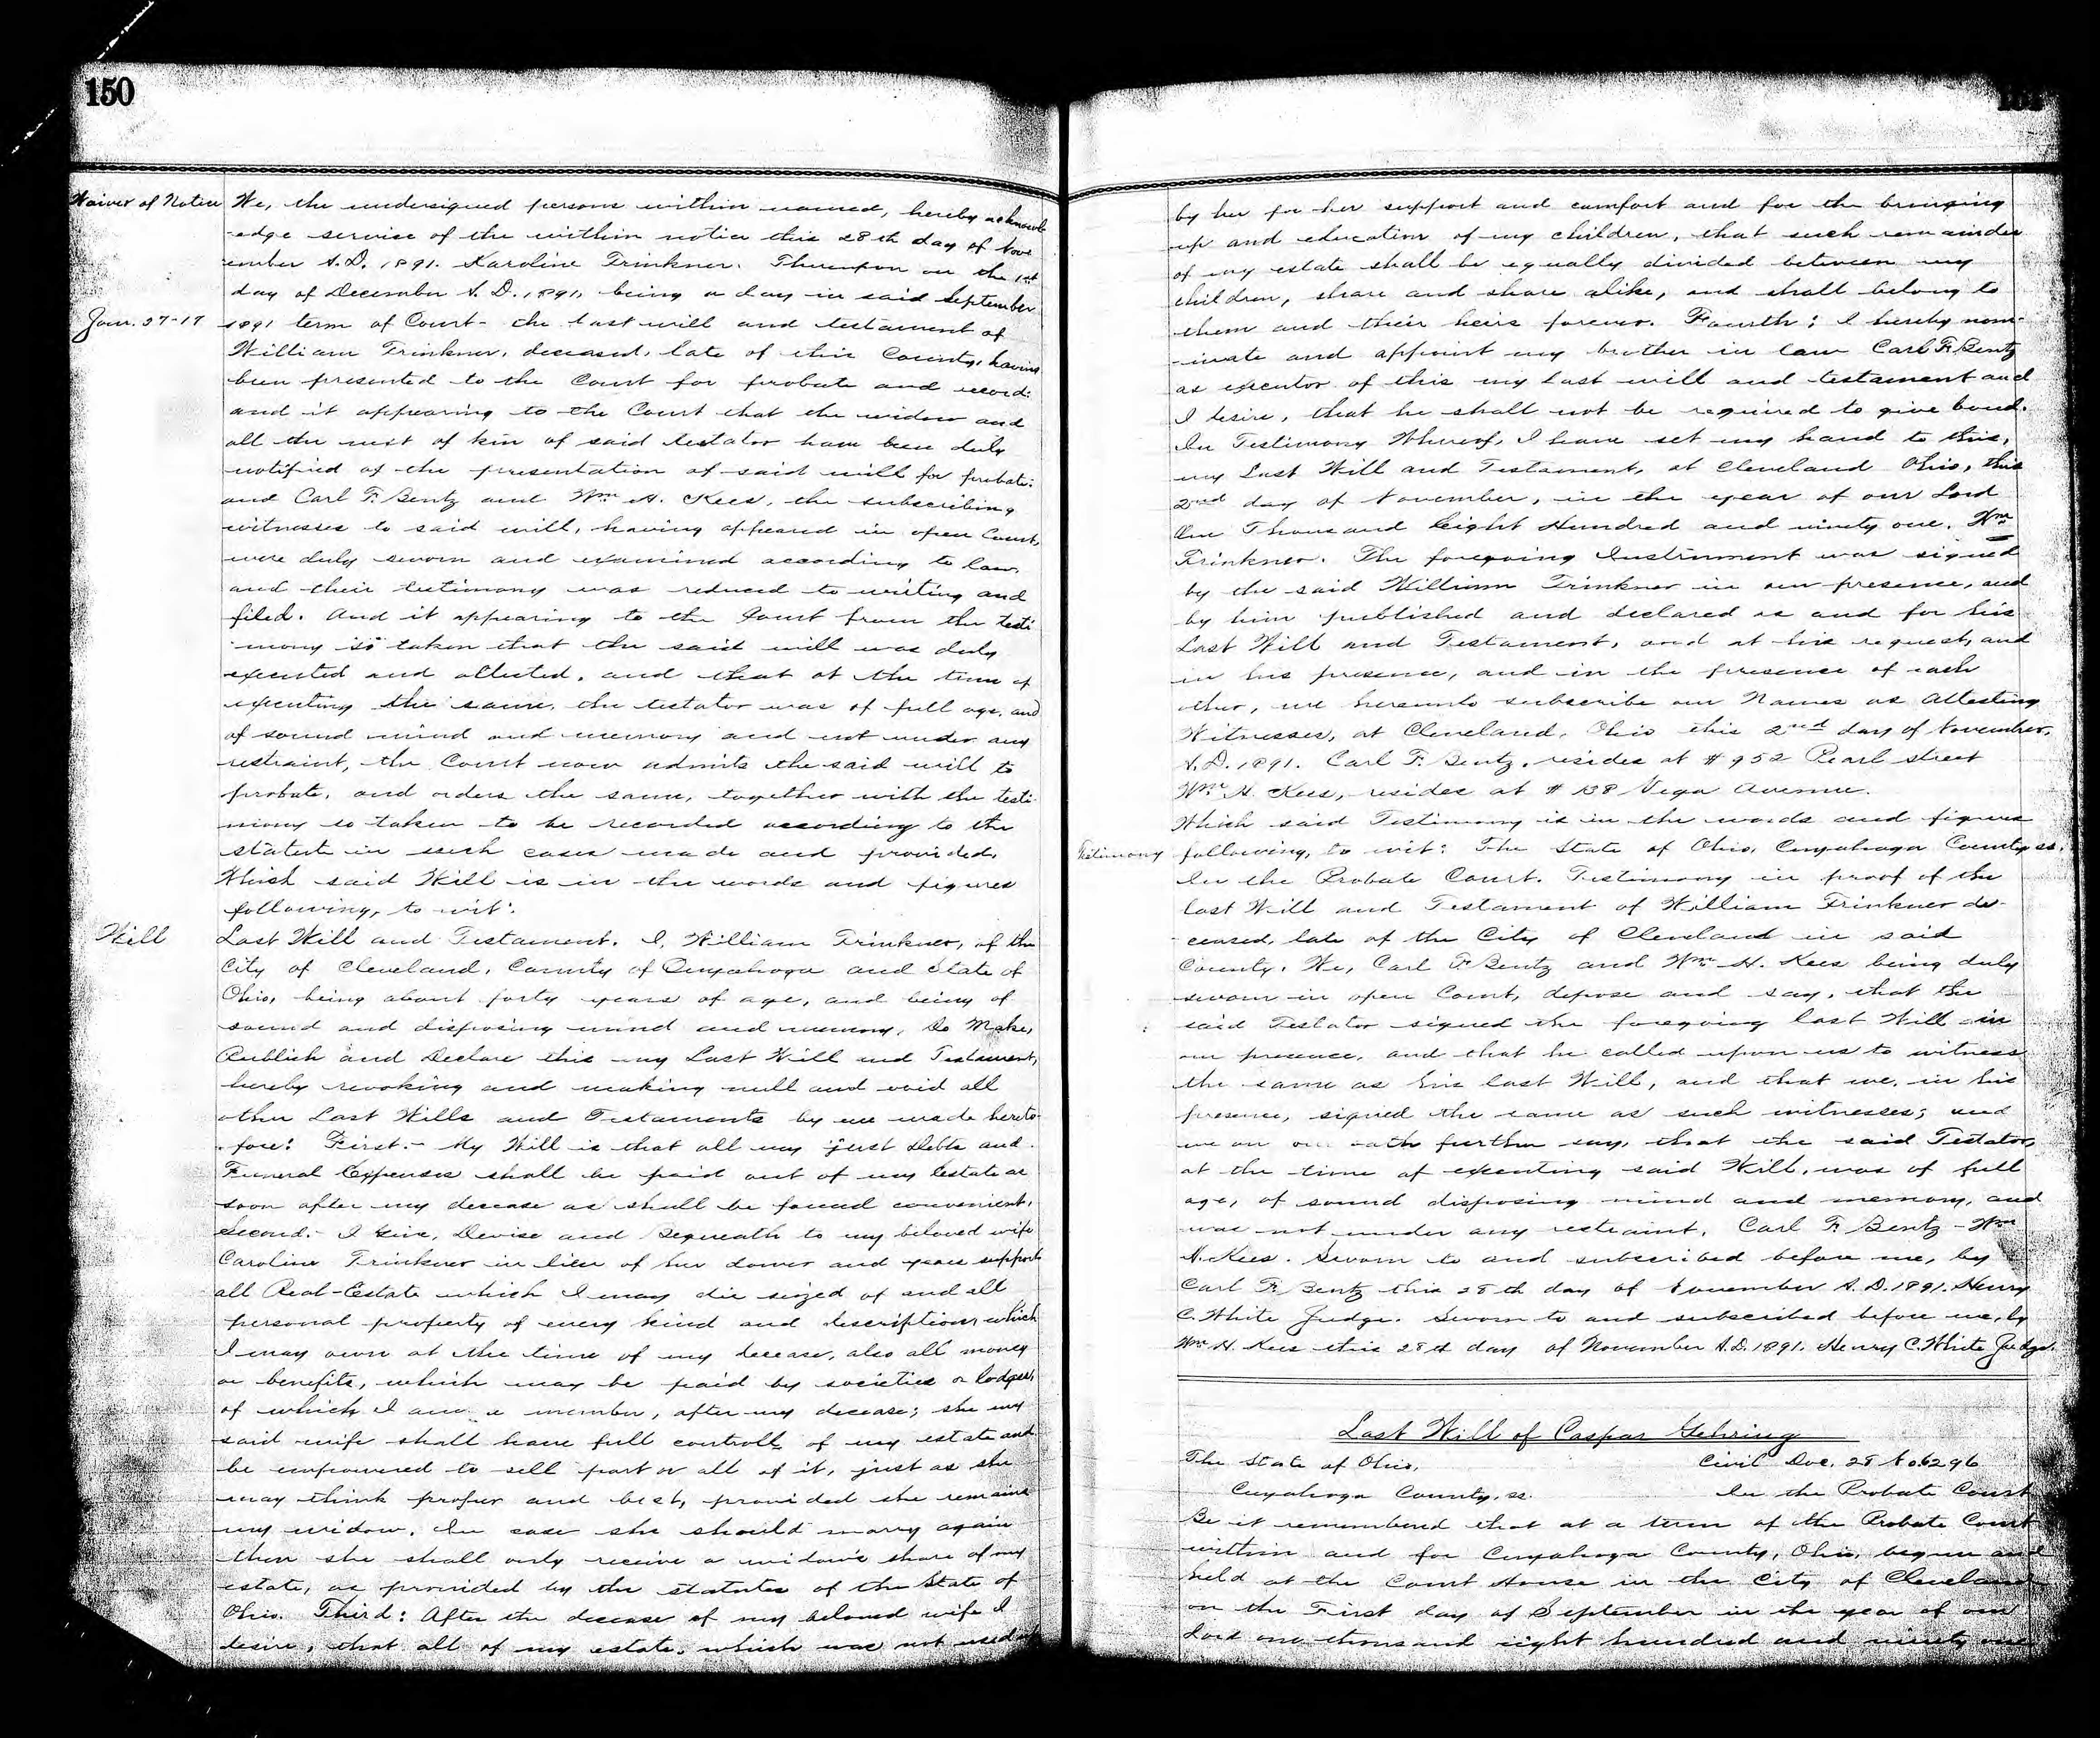 150
Waiver of Notice We, the undersigned persons within named, hereby acknowl
-edge service of the within notice this 28th day of Nov-
ember A.D. 1891. Karoline Trinkner. Thereupon on the 1st
day of December A.D. 1891, being a day in said September
Jour. 37-17 1891 term of Court- the last will and testament of
William Trinkner, deceased, late of this County, having
been presented to the Court for probate and record:
and it appearing to the Court that the widow and
all the next of kin of said testator have been duly
notified of the presentation of said will for probate:
and Carl F. Bentz and Wm H. Kees, the subscribing
witnesses to said will, having appeared in open Court,
were duly sworn and examined according to law,
and their testimony was reduced to writing and
filed. And it appearing to the Court from the testi
mony so taken that the said will was duly
executed and attested, and that at the time of
executing the same, the testator was of full age, and
of sound mind and memory and not under any
restraint, the Court now admits the said will to
probate, and orders the same, together with the testi-
mony so taken to be recorded according to the
statute in such cases made and provided.
Which said Will is in the words and figures
following, to wit:
Will Last Will and Testament. I, William Trinkner, of the
City of Cleveland, County of Cuyahoga and State of
Ohio, being about forty years of age, and being of
sound and disposing mind and memory, do Make,
Publish and Declare this my Last Will and Testament,
hereby revoking and making null and void all
other Last Wills and Testaments by me made hereto-
fore: First.- My Will is that all my just Debts and
Funeral Expenses shall be paid out of my Estate as
soon after my decease as shall be found convenient.
Second.- I Give, Devise and Bequeath to my beloved wife
Caroline Trinkner in lieu of her dower and years support
all Real-Estate which I may die seized of and all
personal property of every kind and description, which
I may own at the time of my decease, also all money
or benefits, which may be paid by societies or lodges,
of which I am a member, after my decease; she my
said wife shall have full controll of my estate and
be empowered to sell part or all of it, just as she
may think proper and best, provided she remains
my widow. In case she should marry again
then she shall only receive a widow's share of my
estate, as provided by the statutes of the State of
Ohio. Third: After the decease of my beloved wife I
desire, that all of my estate, which was not used
151
by her for her support and comfort and for the bringing
up and education of my children, that such remainder
of my estate shall be equally divided between my
children, share and share alike, and shall belong to
them and their heirs forever. Fourth: I hereby nom-
-inate and appoint my brother in law Carl F. Bentz
as executor of this my last will and testament and
I desire, that he shall not be required to give bond.
In Testimony Whereof, I have set my hand to this,
my Last Will and Testament, at Cleveland Ohio, this
2nd day of November, in the year of our Lord
One Thousand Eight Hundred and ninety one. Wm
Trinkner. The foregoing Instrument was signed
by the said William Trinkner in our presence, and
by him published and declared as and for his
Last Will and Testament, and at his request, and
in his presence, and in the presence of each
other, we hereunto subscribe our Names as Attesting
Witnesses, at Cleveland, Ohio this 2nd day of November,
A.D. 1891. Carl F. Bentz, resides at # 952 Pearl street
Wm H. Kees, resides at # 138 Vega Avenue.
Which said Testimony is in the words and figures
Testimony following, to wit: The State of Ohio, Cuyahoga County ss.
In the Probate Court. Testimony in proof of the
last Will and Testament of William Trinkner de-
ceased, late of the City of Cleveland in said
County. We, Carl F. Bentz and Wm H. Kees being duly
sworn in open Court, depose and say, that the
said Testator signed the foregoing last Will in
our presence, and that he called upon us to witness
the same as his last Will, and that we, in his
presence, signed the same as such witnesses; and
we on our oath further say, that the said Testator,
at the time of executing said Will, was of full
age, of sound disposing mind and memory, and
was not under any restraint. Carl F. Bentz - Wm
H. Kees. Sworn to and subscribed before me, by
Carl F. Bentz this 28th day of November A.D. 1891. Henry
C. White Judge. Sworn to and subscribed before me, by
Wm H. Kees this 28th day of November A.D. 1891. Henry C. White Judge.
Last Will of Caspar Gehring
The State of Ohio, Civil Doc. 28 No. 6296
Cuyahoga County, ss. In the Probate Court
Be it remembered that at a term of the Probate Court
within and for Cuyahoga County, Ohio, begun and
held at the Court House in the City of Cleveland
on the First day of September in the year of our
Lord one thousand eight hundred and ninety one